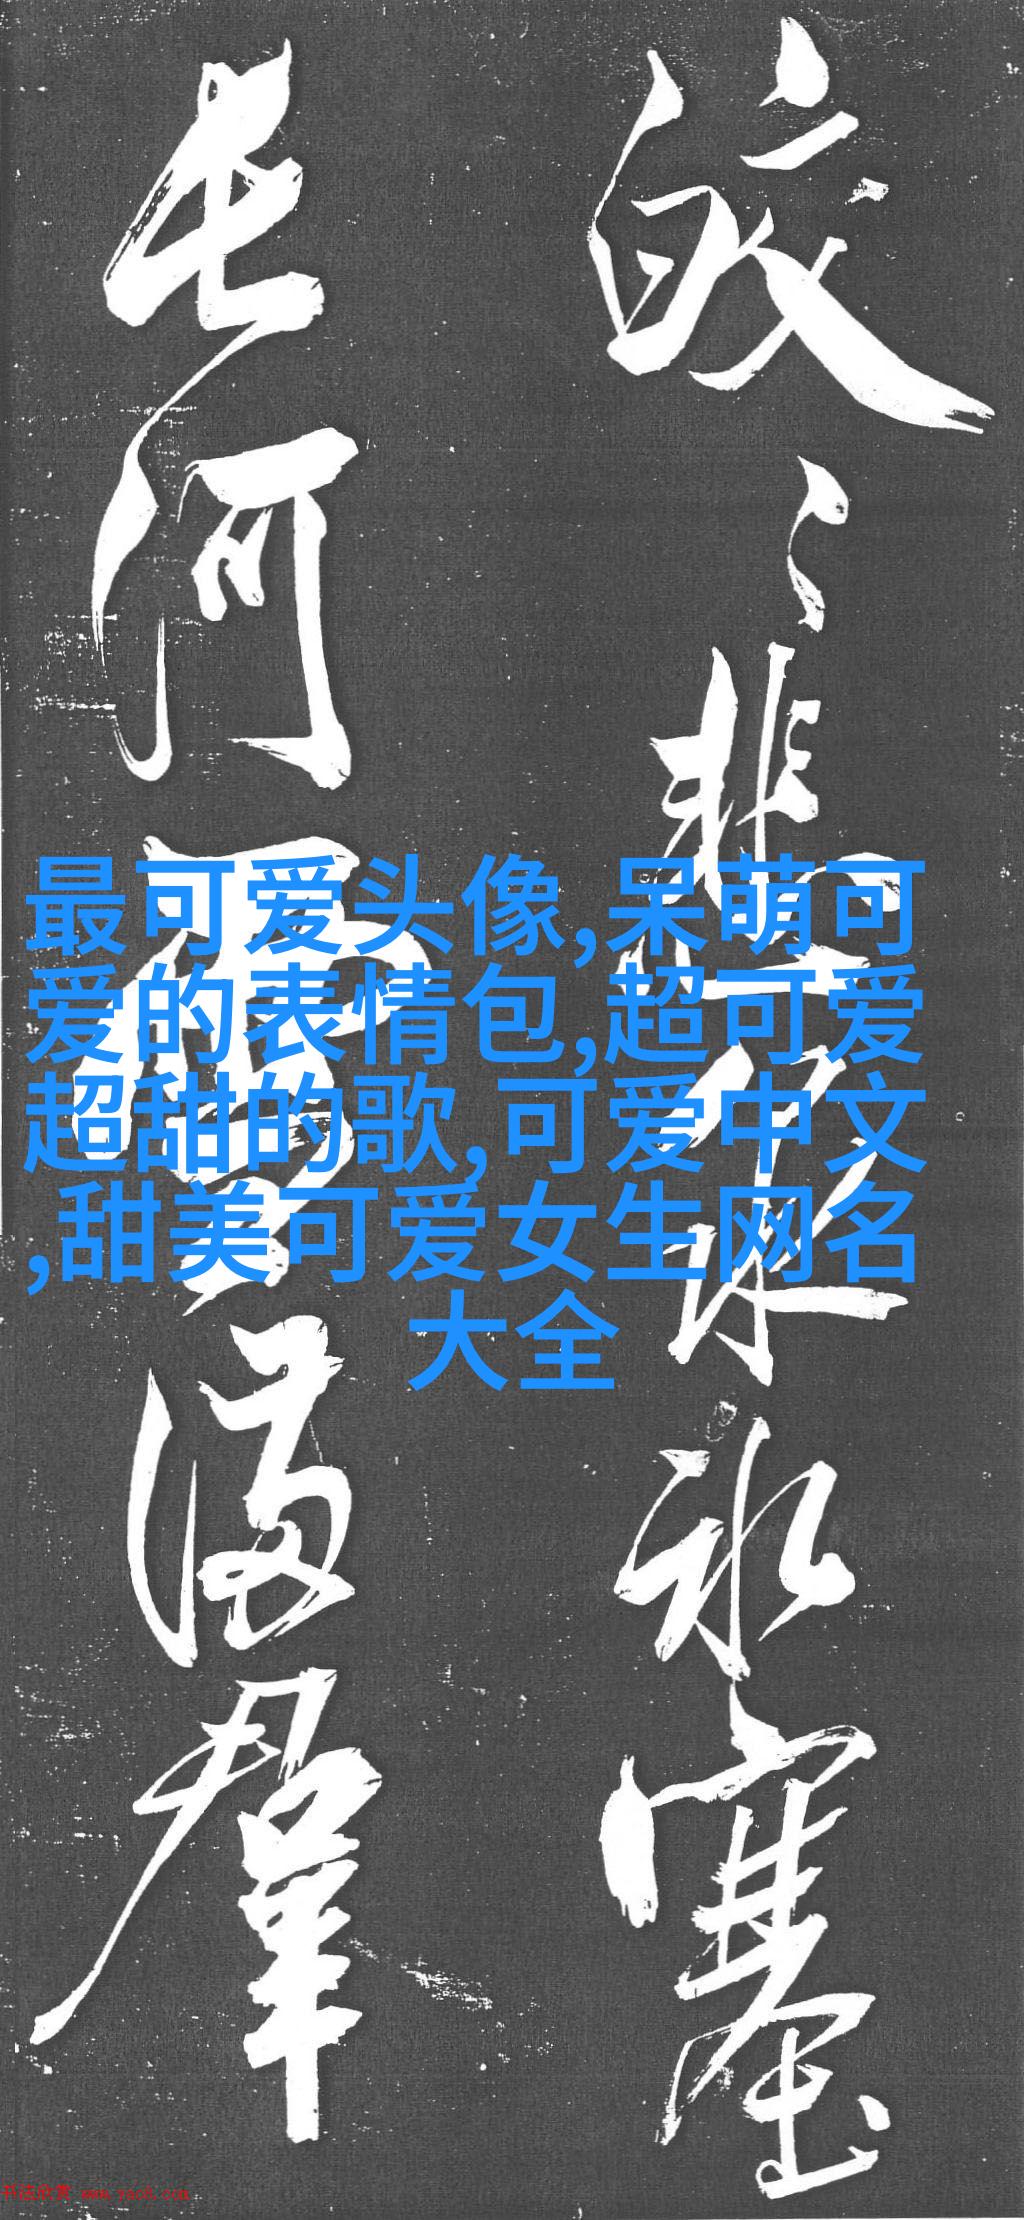 皎〻悲
水塞
長河
滿群
最可爱头像,呆萌可
爱的表情包,超可爱
超甜的歌,可爱中文
,甜美可爱女生网名
大全
书法欣赏 www.yac8.com